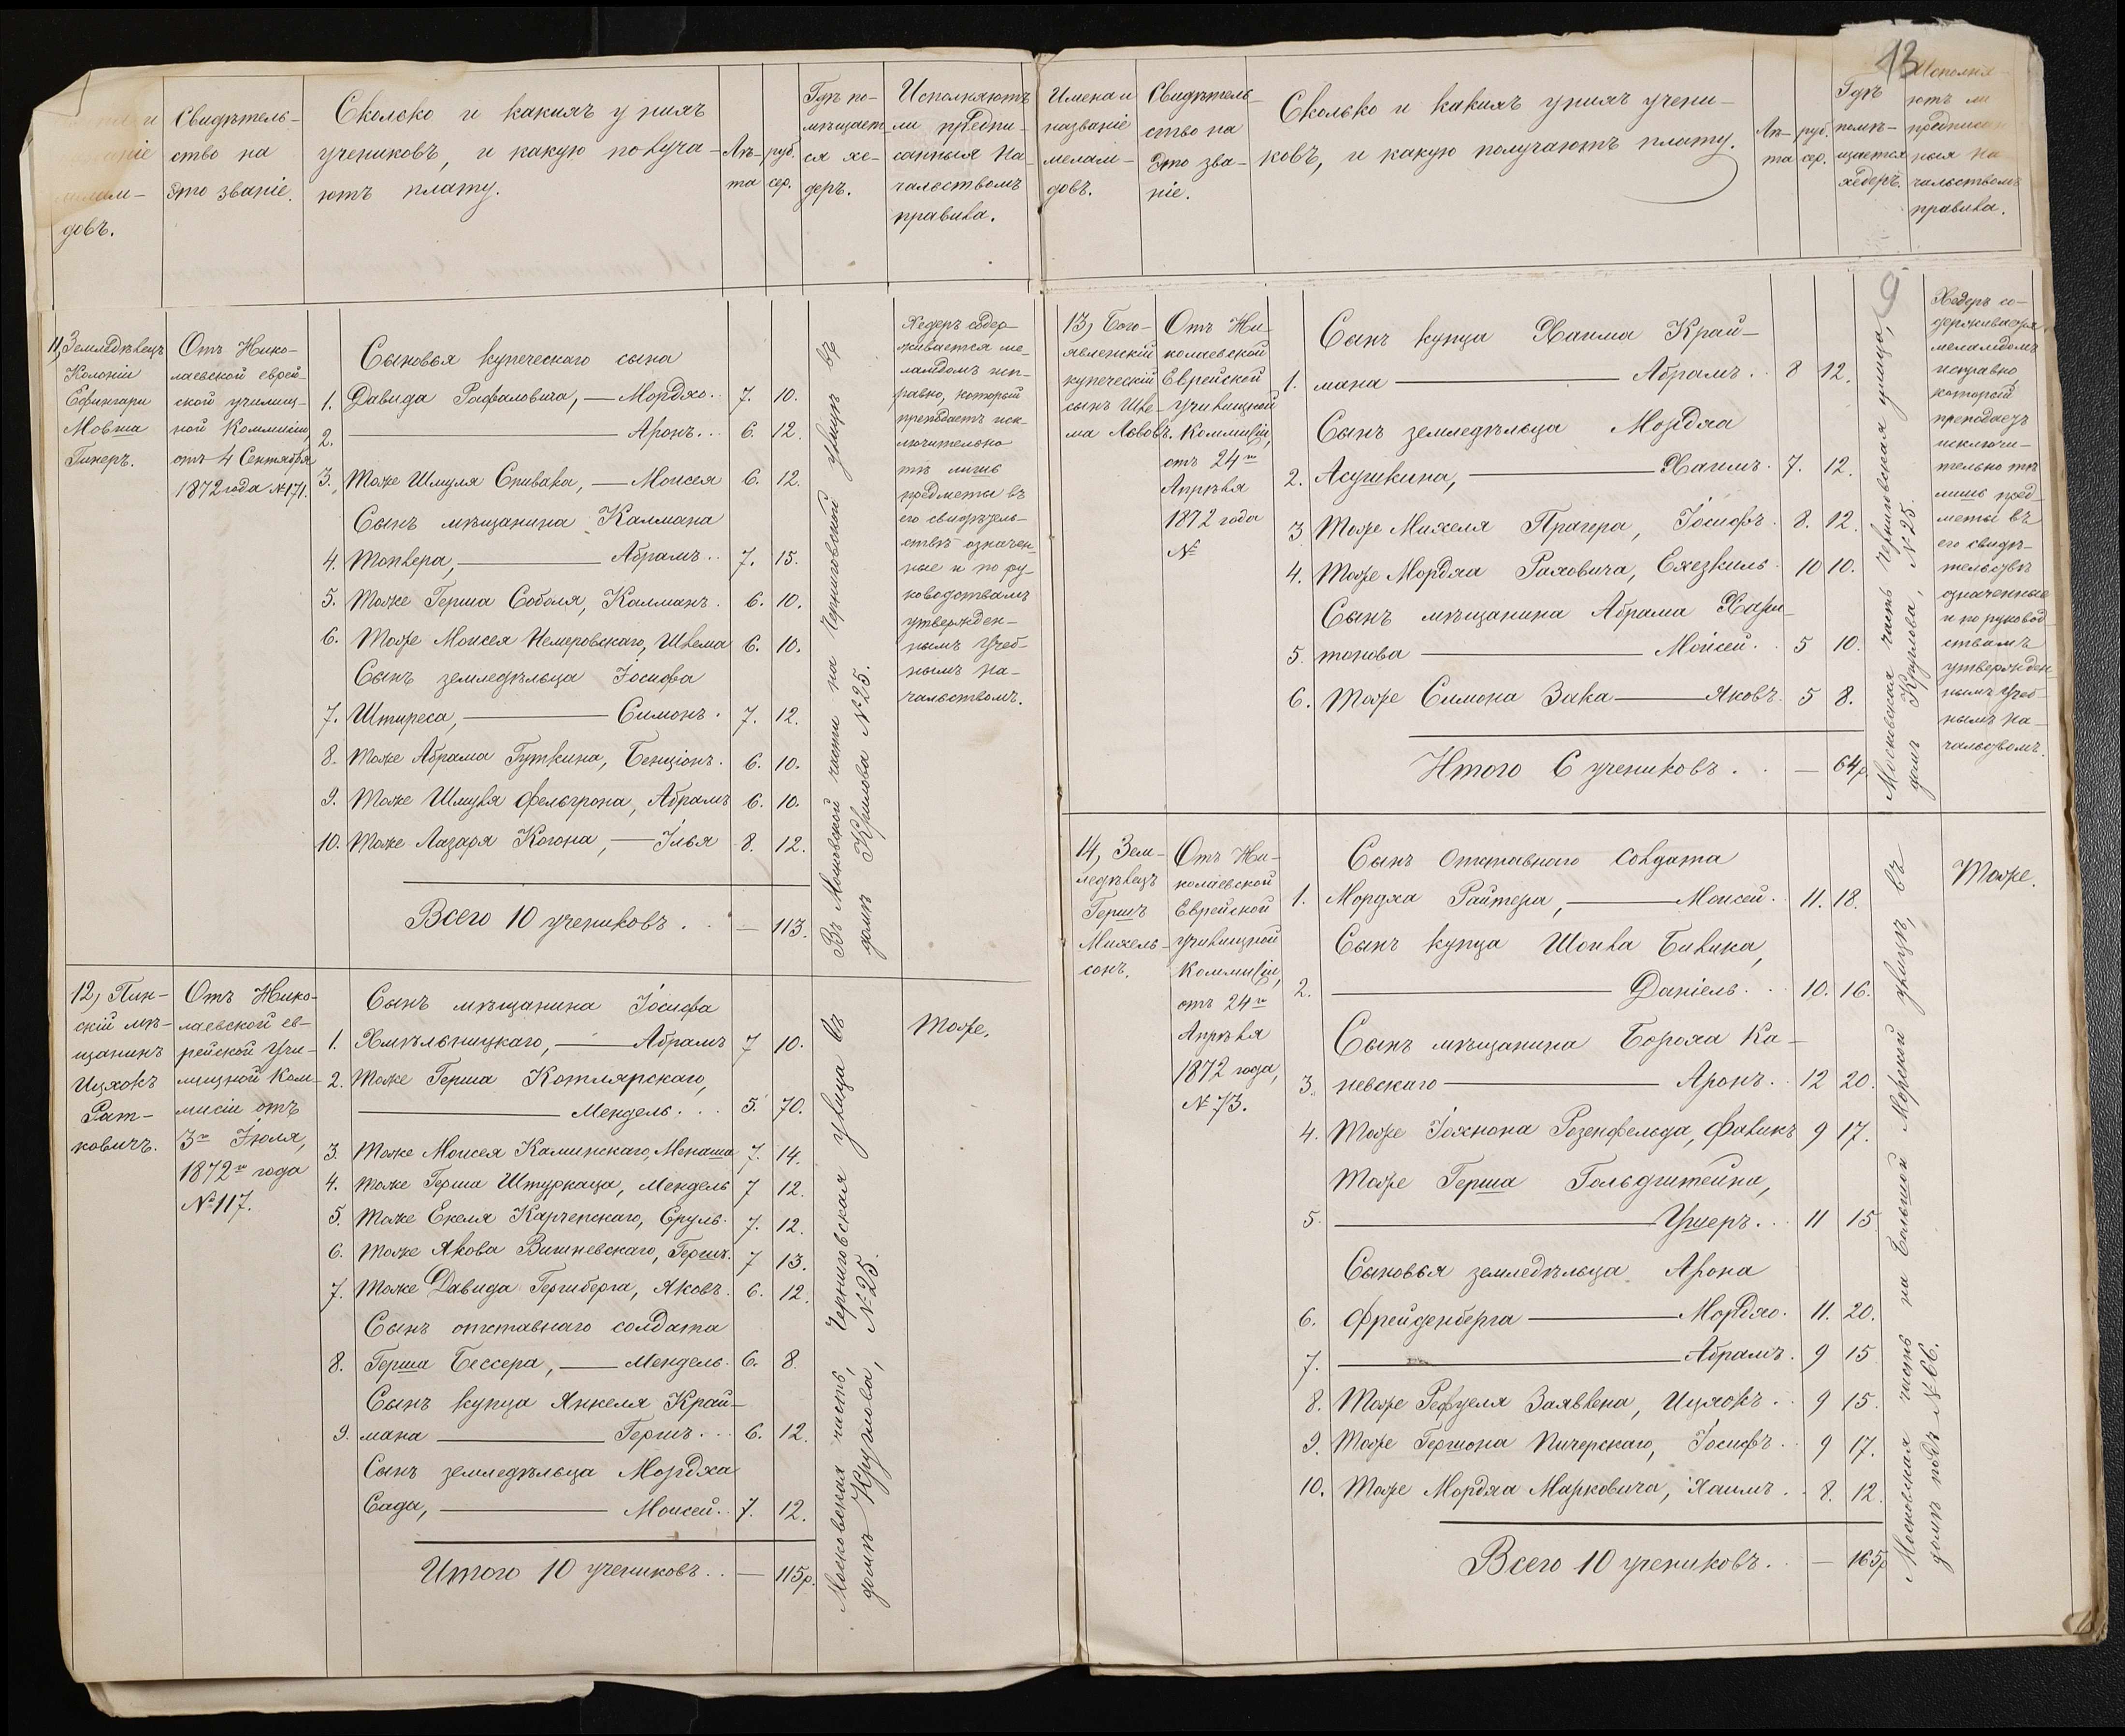 13
Свидѣтель-
ство на
это званіе.
Сколько и какихъ у нихъ
учениковъ, и какую получа-
ютъ плату.
Лѣ-
та
руб.
сер.
Гдѣ по-
мѣщает-
ся хе-
деръ.
Исполняютъ
ли предпи-
санныя на-
чальствомъ
правила.
11, Земледѣлецъ
Колоніи
Ефингари
Мовша
Гинеръ.
Отъ Нико-
лаевской еврей-
ской училищ-
ной Коммисіи,
отъ 4 Сентября
1872 года №171.
Сыновья купеческаго сына
1. Давида Рафаловича, — Мордхо. 7. 10.
2. — Аронъ. 6. 12.
3. Тоже Шмуля Спивака, — Моисея 6. 12.
Сынъ мѣщанина Калмана
4. Топлера, — Абрамъ. 7. 15.
5. Тоже Герша Соболя, Калманъ. 6. 10.
6. Тоже Моисея Немеровскаго, Шлема 6. 10.
Сынъ земледѣльца Іосифа
7. Штиреса, — Симонъ. 7. 12.
8. Тоже Абрама Гуткина, Бенціонъ. 6. 10.
9. Тоже Шмуля Фельгрона, Абрамъ 6. 10.
10. Тоже Лазаря Когона, — Илья 8. 12.
Всего 10 учениковъ . . — 113.
Въ Московской части на Черниговской улицѣ въ
домѣ Крылова №25.
Хедеръ содер-
живается ме-
ламдомъ исп-
равно, который
преподаетъ иск-
лючительно
тѣ лишь
предметы въ
его свидѣтель-
ствѣ означен-
ные и по ру-
ководствамъ
утвержден-
нымъ Учеб-
нымъ На-
чальствомъ.
12, Пин-
скій мѣ-
щанинъ
Ицхокъ
Рат-
ковичъ.
Отъ Нико-
лаевской ев-
рейской Учи-
лищной Ком-
мисіи отъ
3го Іюля,
1872го года
№117.
Сынъ мѣщанина Іосифа
1. Хмѣльницкаго, — Абрамъ 7 10.
2. Тоже Герша Котлярскаго,
— Мендель. . . 5. 10.
3. Тоже Моисея Каминскаго, Менаша 7. 14.
4. Тоже Герша Штуркаца, Мендель 7 12.
5. Тоже Екеля Карченскаго, Сруль. 7. 12.
6. Тоже Якова Вишневскаго, Гершъ. 7 13.
7. Тоже Давида Гершберга, Яковъ. 6. 12.
Сынъ отставнаго солдата
8. Герша Бессера, — Мендель. 6. 8.
Сынъ купца Янкеля Край-
9. мана — Гершъ. . . 6. 12.
Сынъ земледѣльца Мордха
Сада, — Моисей. . 7. 12.
Итого 10 учениковъ . . — 115р.
Московская часть, Черниговская улица въ
домѣ Круглова, №25.
Тоже.
Имена и
названіе
мелам-
довъ.
Свидѣтель-
ство на
это зва-
ніе.
Сколько и какихъ у нихъ учени-
ковъ, и какую получаютъ плату.
Лѣ-
та
руб.
сер.
Гдѣ
помѣ-
щается
хедеръ.
Исполня-
ютъ ли
предписан
ныя на-
чальствомъ
правила.
13, Бого-
явленскій
купеческій
сынъ Шле-
ма Львовъ.
Отъ Ни-
колаевской
Еврейской
Училищной
Коммисіи,
отъ 24го
Апрѣля
1872 года
№
Сынъ купца Хаима Край-
1. мана — Абрамъ. . 8 12.
Сынъ земледѣльца Мордха
2. Асушкина, — Хаимъ. 7. 12.
3 Тоже Михеля Прагера, Іосифъ. 8. 12.
4. Тоже Мордха Раховича, Ехезкиль. 10 10.
Сынъ мѣщанина Абрама Хари-
5. тонова — Мойсей. . 5 10.
6. Тоже Симона Зака — Яковъ. 5 8.
Итого 6 учениковъ . . — 64р.
Московская часть Черниговская улица,
домъ Круглова, №25.
Хедеръ со-
держивается
меламдомъ
исправно
который
преподаетъ
исключи-
тельно тѣ
лишь пред-
меты въ
его свидѣ-
тельствѣ
означенные
и по руковод
ствамъ
утвержден
нымъ Учеб-
нымъ На-
чальствомъ.
14, Зем-
ледѣлецъ
Гершъ
Михель-
сонъ.
Отъ Ни-
колаевской
Еврейской
Училищной
Коммисіи,
отъ 24го
Апрѣля
1872 года,
№ 73.
Сынъ Отставнаго Солдата
1. Мордха Райтера, — Моисей. 11. 18.
Сынъ купца Шоила Билика,
2. — Даніель. . 10. 16.
Сынъ мѣщанина Бороха Ка-
3. невскаго — Аронъ. . 12 20.
4. Тоже Іохнона Розенфельда, Фаликъ 9 17.
Тоже Герша Гольдштейна,
5. — Ушеръ. . . 11 15
Сыновья земледѣльца Арона
6. Фрейденберга — Мордхо. 11. 20.
7. — Абрамъ. 9 15
8. Тоже Рефуеля Заявлена, Ицхокъ. . 9 15.
9. Тоже Гершона Пичерскаго, Іосифъ. . 9 17.
10. Тоже Мордха Марковича, Хаимъ. . 8. 12.
Всего 10 учениковъ . . — 165р
Московская часть на Большой Морской улицѣ, въ
домѣ подъ №66.
Тоже.